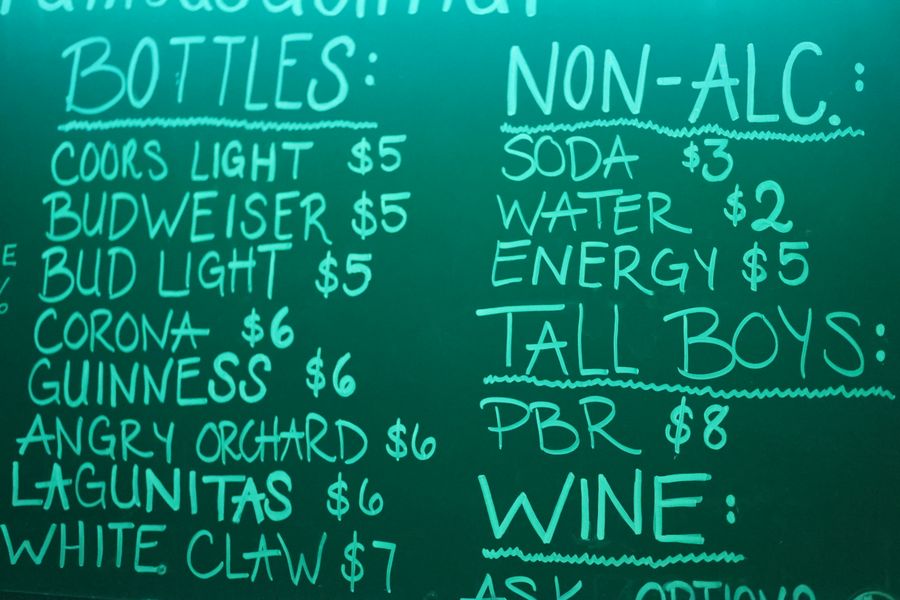 BOTTLES:
COORS LIGHT $5
BUDWEISER $5
BUD LIGHT $5
CORONA $6
GUINNESS $6
ANGRY ORCHARD $6
LAGUNITAS $6
WHITE CLAW $7
NON-ALC.:
SODA $3
WATER $2
ENERGY $5
TALL BOYS:
PBR $8
WINE:
ASK OPTIONS